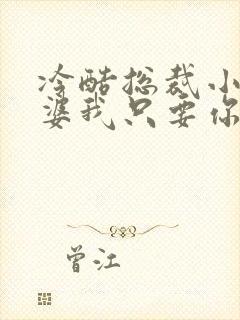 冷酷总裁小
婆我只要你
曾江